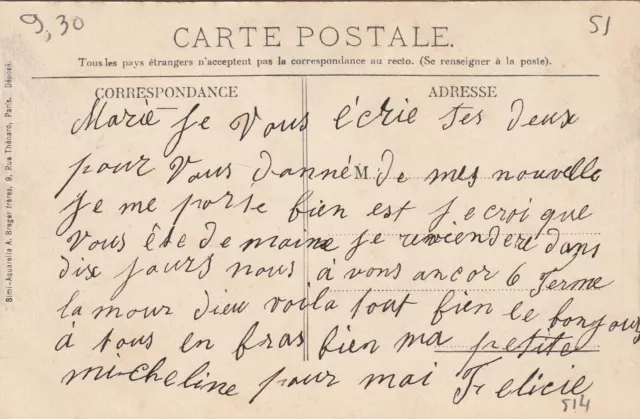 9,30
51
CARTE POSTALE.
Tous les pays étrangers n'acceptent pas la correspondance au recto. (Se renseigner à la poste).
CORRESPONDANCE
ADRESSE
Simi-Aquarelle A. Breger frères, 9, Rue Thénard, Paris. Déposé.
M
Marie Je Vous écrie tes deux
pour Vous donné de mes nouvelle
Je me porte bien est Je croi que
Vous éte de maine Je reviendere dans
dix jours nous à vons ancor 6 Ferme
la mour dieu voila tout bien le bonjour
à tous en bras bien ma petite
micheline pour moi Felicie
514